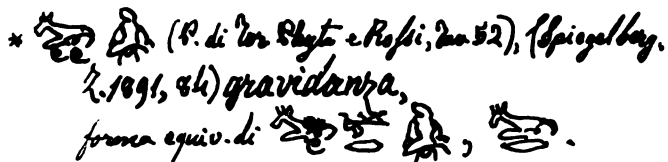 * (P. di Tor. Pleyte e Rossi, Tav. 52), (Spiegelberg,
Z. 1891, 84) gravidanza,
forma equiv. di , .